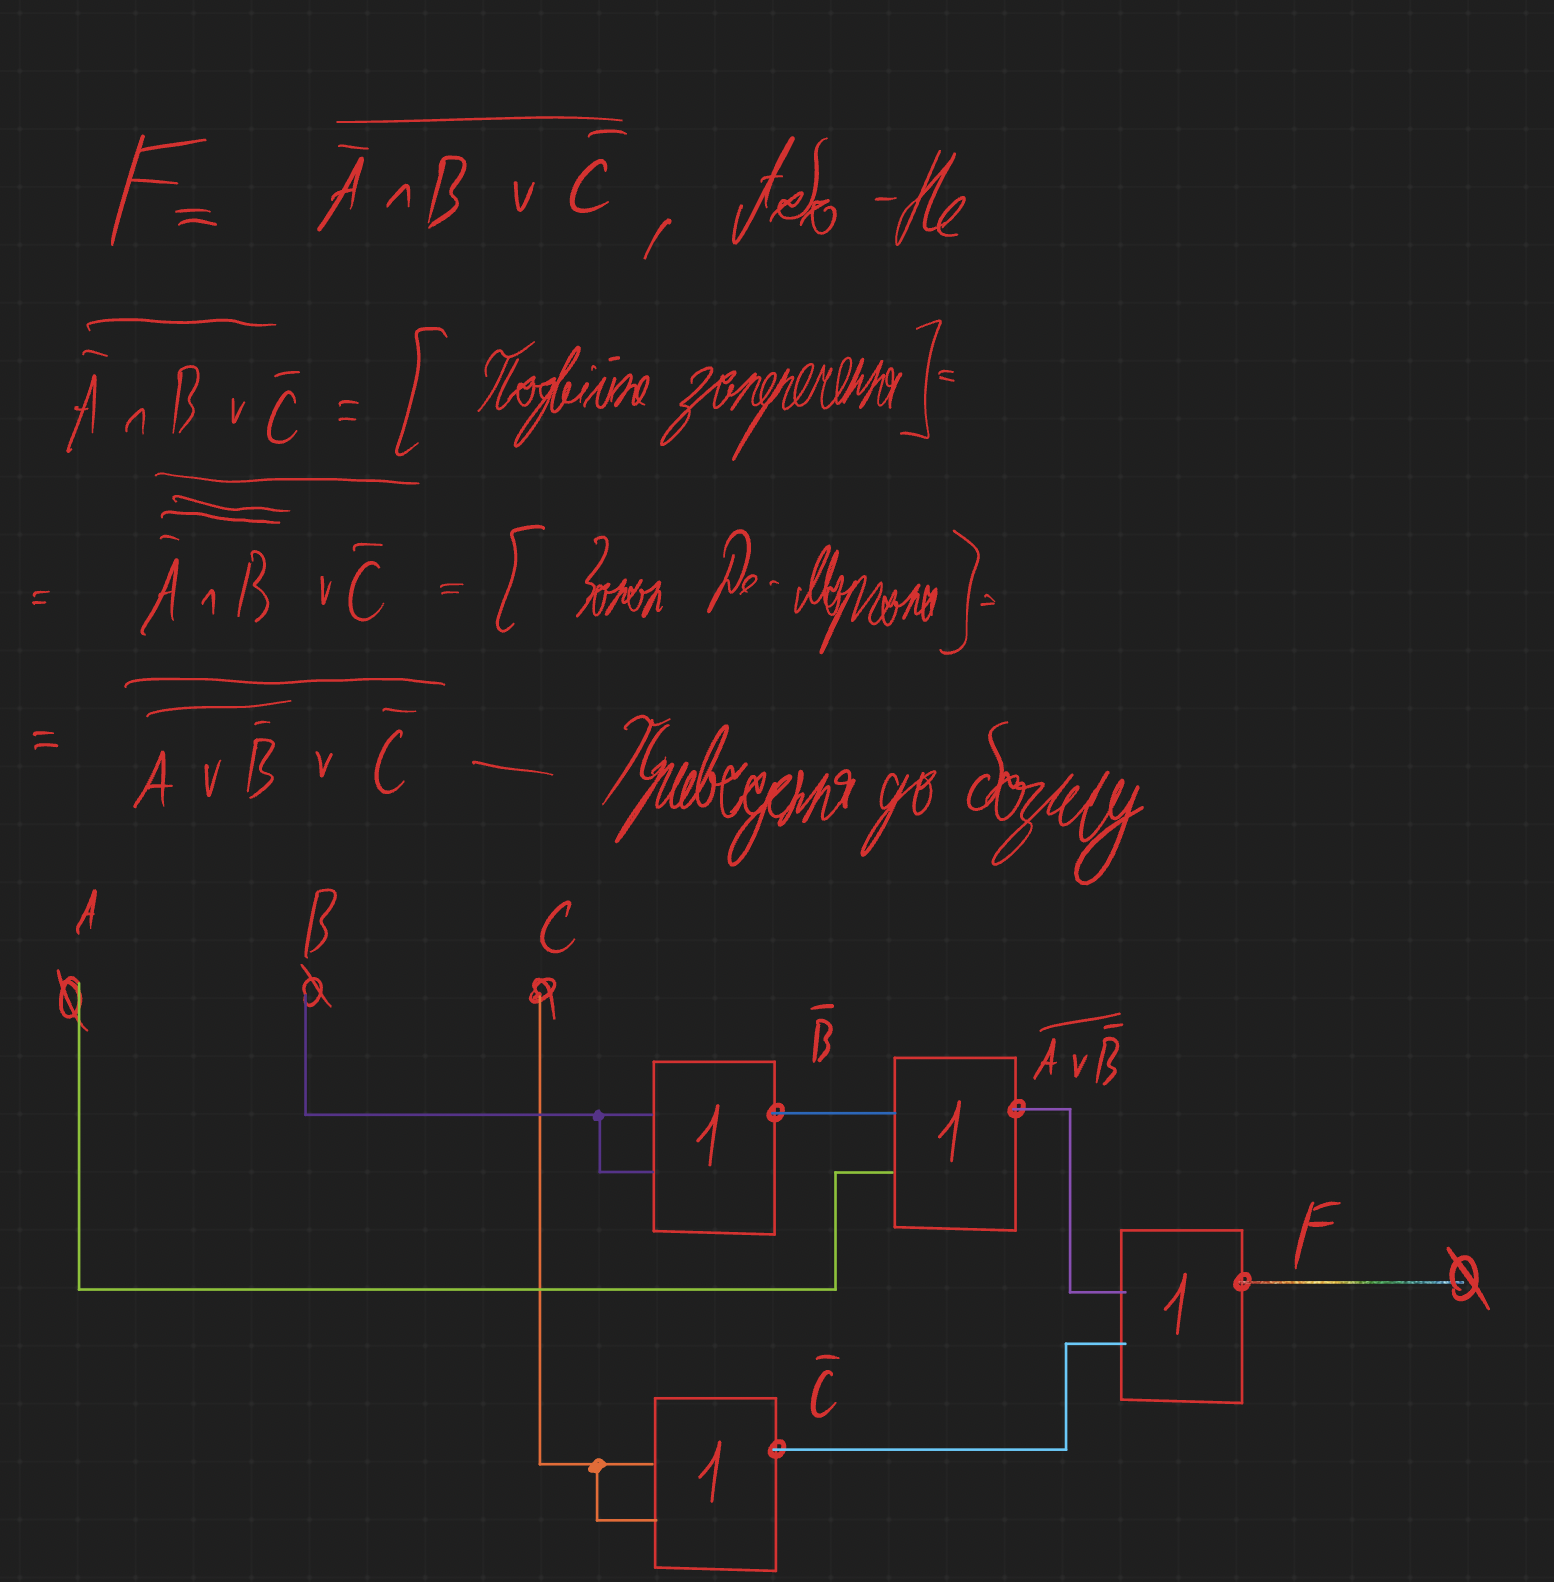 F = \overline{\overline{A} ∧ B ∨ \overline{C}} , Або - Не
\overline{\overline{A} ∧ B ∨ \overline{C}} = [ Подвійне заперечення ] =
= \overline{\overline{\overline{\overline{A} ∧ B}} ∨ \overline{C}} = [ Закон Де-Моргана ] =
= \overline{\overline{A ∨ \overline{B}} ∨ \overline{C}} — Приведення до базису
A B C
\overline{B} \overline{A ∨ \overline{B}}
1 1
F
1
\overline{C}
1